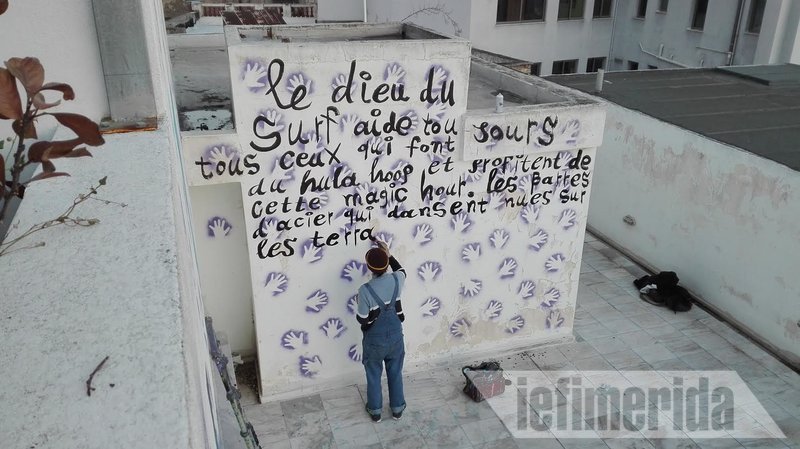 le dieu du
Surf aide tou sours
tous ceux qui font
du hula hoop et profitent de
cette magic hour. les barres
d'acier qui dansent nues sur
les terra
iefimerida